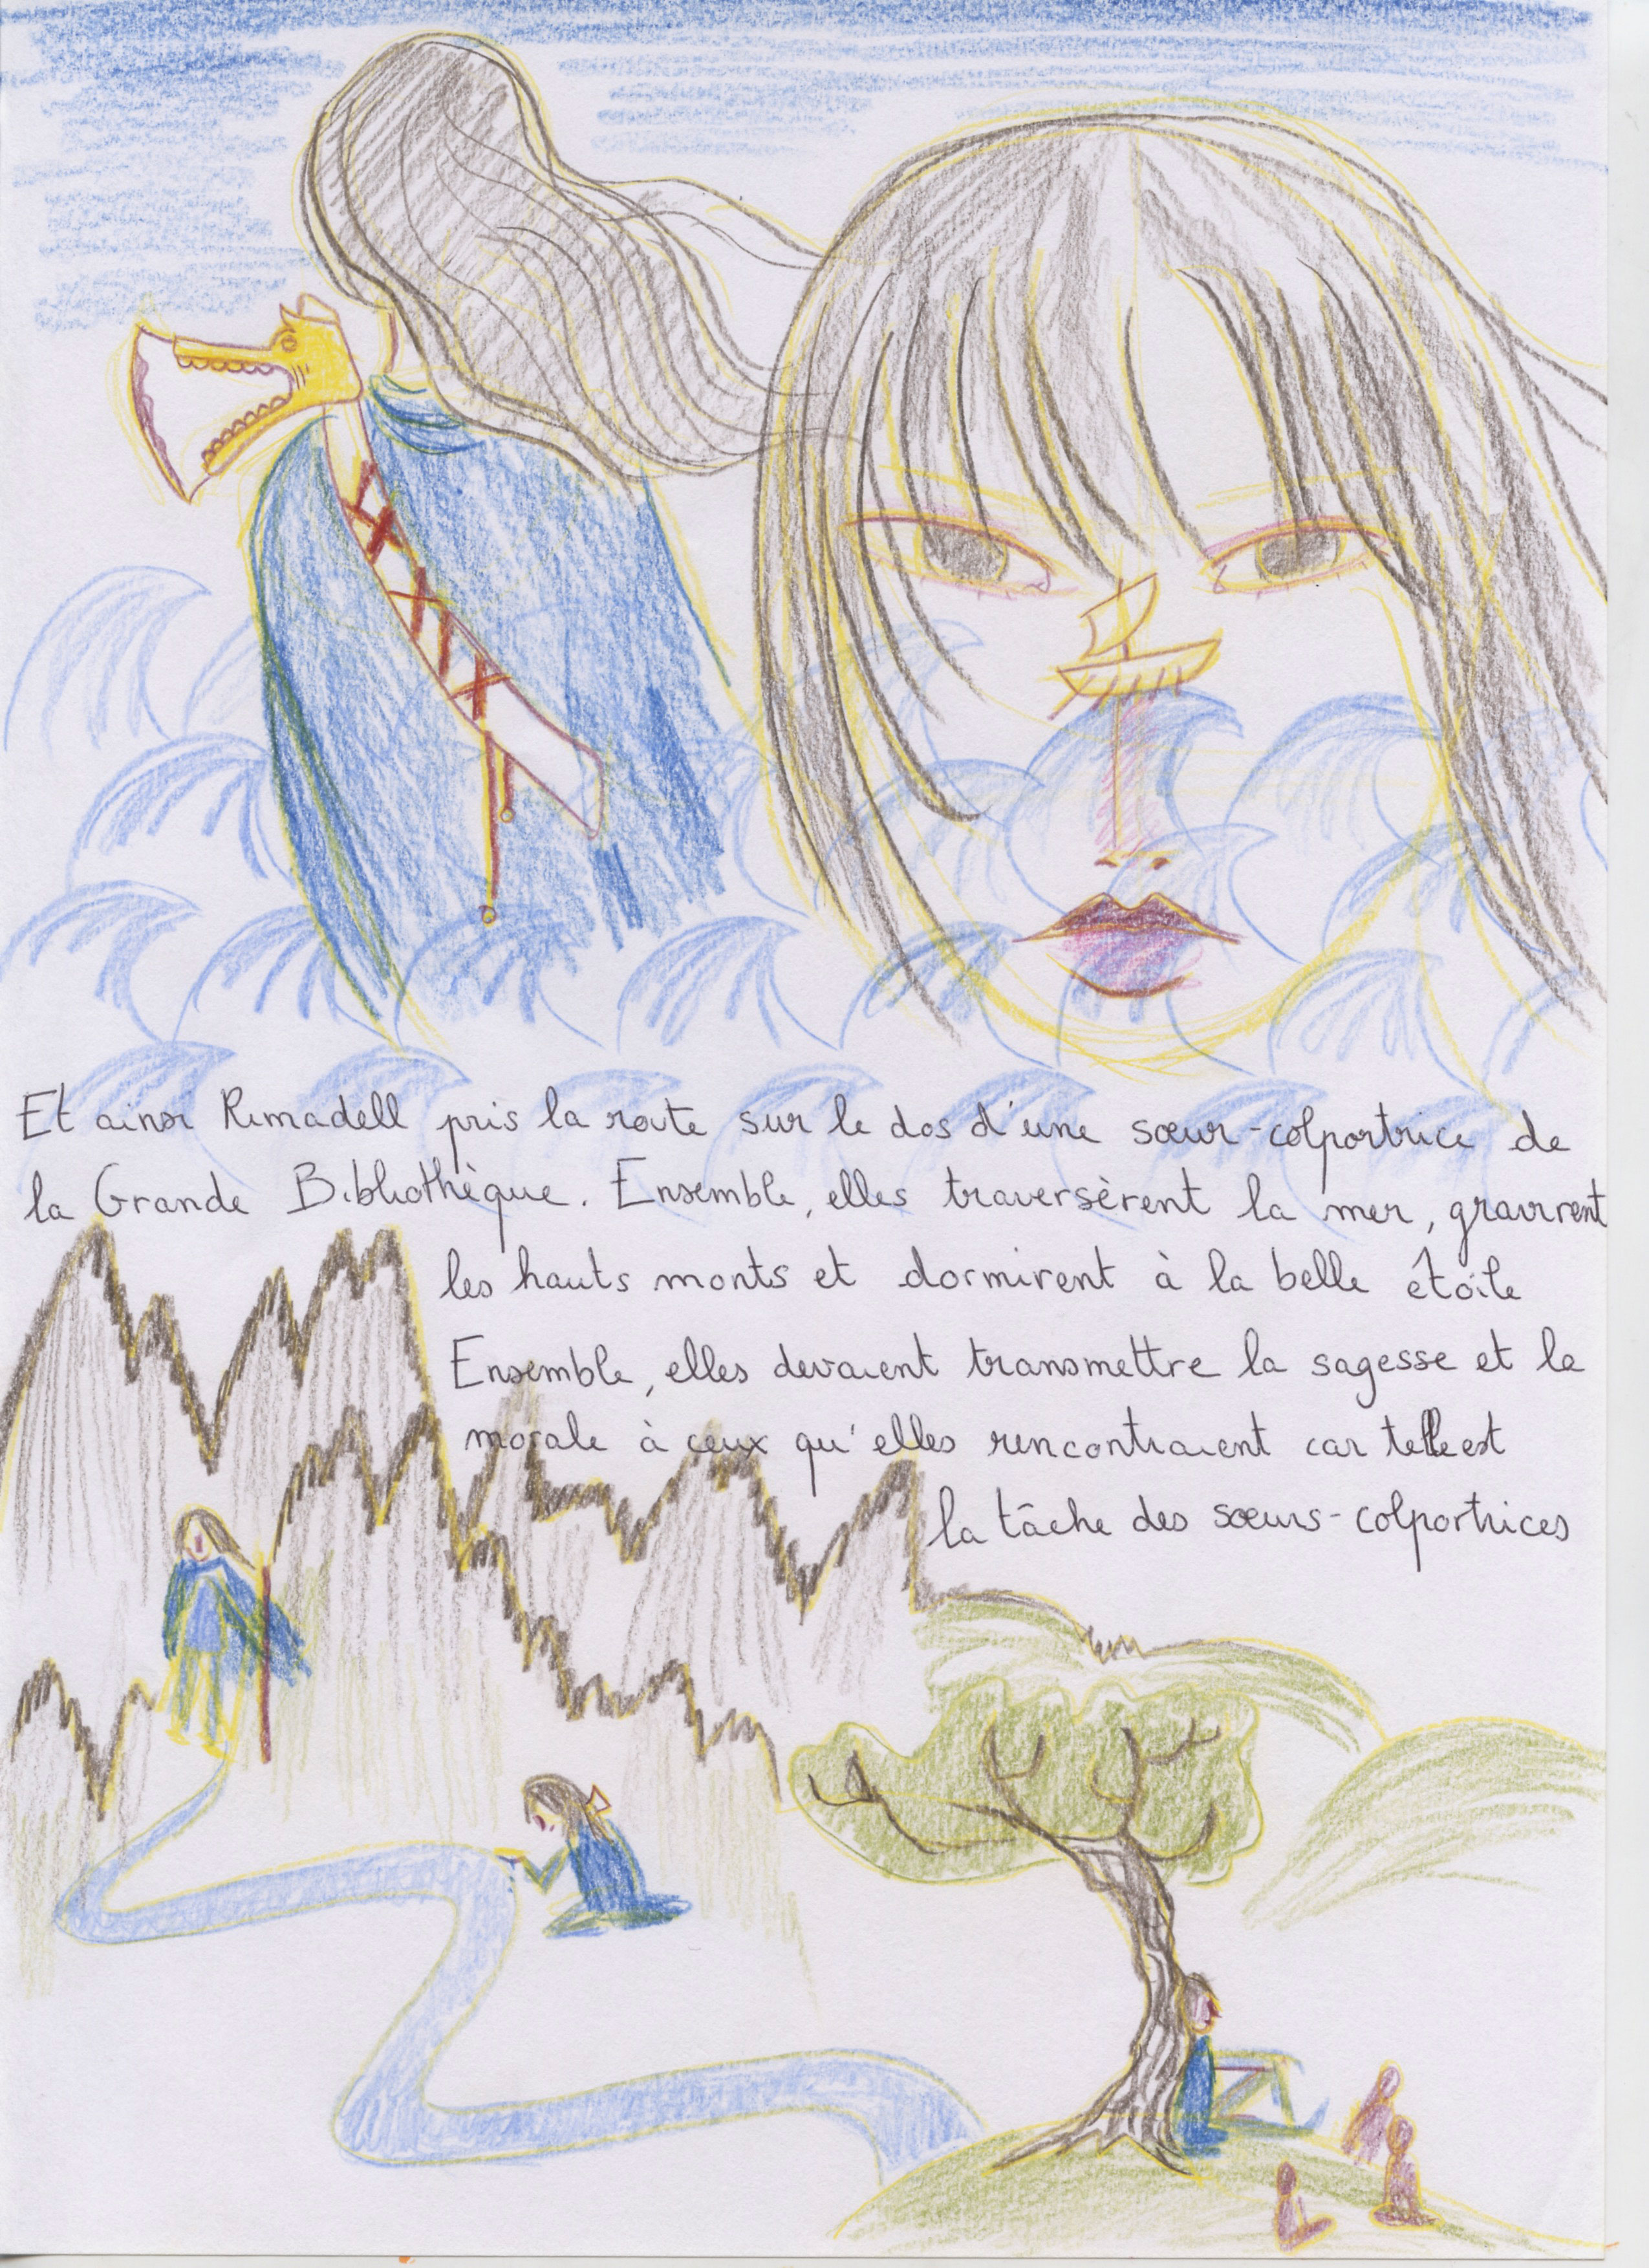 Et ainsi Rimadell pris la route sur le dos d'une sœur-colportrice de
la Grande Bibliothèque. Ensemble, elles traversèrent la mer, gravirent
les hauts monts et dormirent à la belle étoile
Ensemble, elles devaient transmettre la sagesse et la
morale à ceux qu'elles rencontraient car telle est
la tâche des sœurs-colportrices